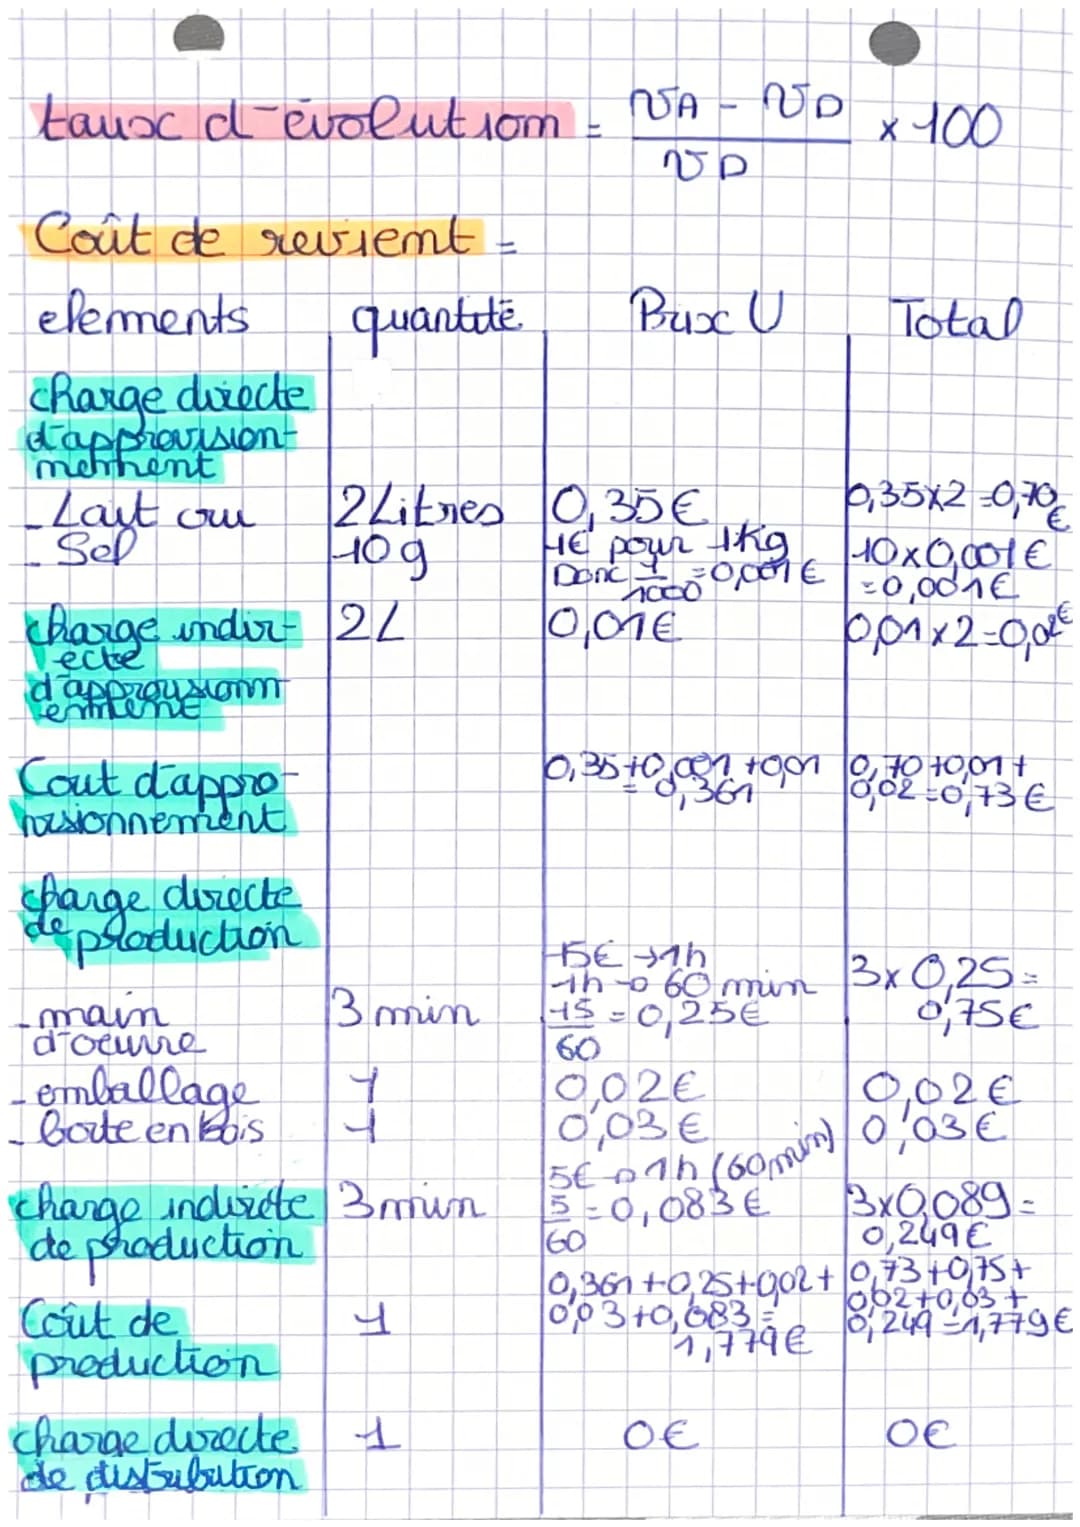 taux d'évolution = VA - VD / VD x 100
Coût de revient =
elements quantité Prix U Total
charge directe
d'approvision-
nement
- Lait cru 2 Litres 0,35€ 0,35x2=0,70€
- Sel 10g 1€ pour 1kg 10x0,001€
Donc 1/1000 =0,001€ =0,001€
charge indir- 2L 0,01€ 0,01x2=0,02€
ecte
d'approvisionn
ement
Cout d'appro- 0,35+0,001+0,01 0,70+0,01+
visionnement = 0,361 0,02=0,73€
charge directe
de production
15€ →1h
1h → 60 min 3x0,25=
- main 3 min 15/60 = 0,25€ 0,75€
d'oeuvre
- emballage 1 0,02€ 0,02€
- boite en bois 1 0,03€ 0,03€
5€ → 1h (60min)
charge indirecte 3min 5/60 = 0,083€ 3x0,089=
de production 0,249€
0,361+0,25+0,02+ 0,73+0,75+
Coût de 1 0,03+0,083= 0,02+0,03+
production 1,779€ 0,249=1,779€
charge directe 1 0€ 0€
de distribution